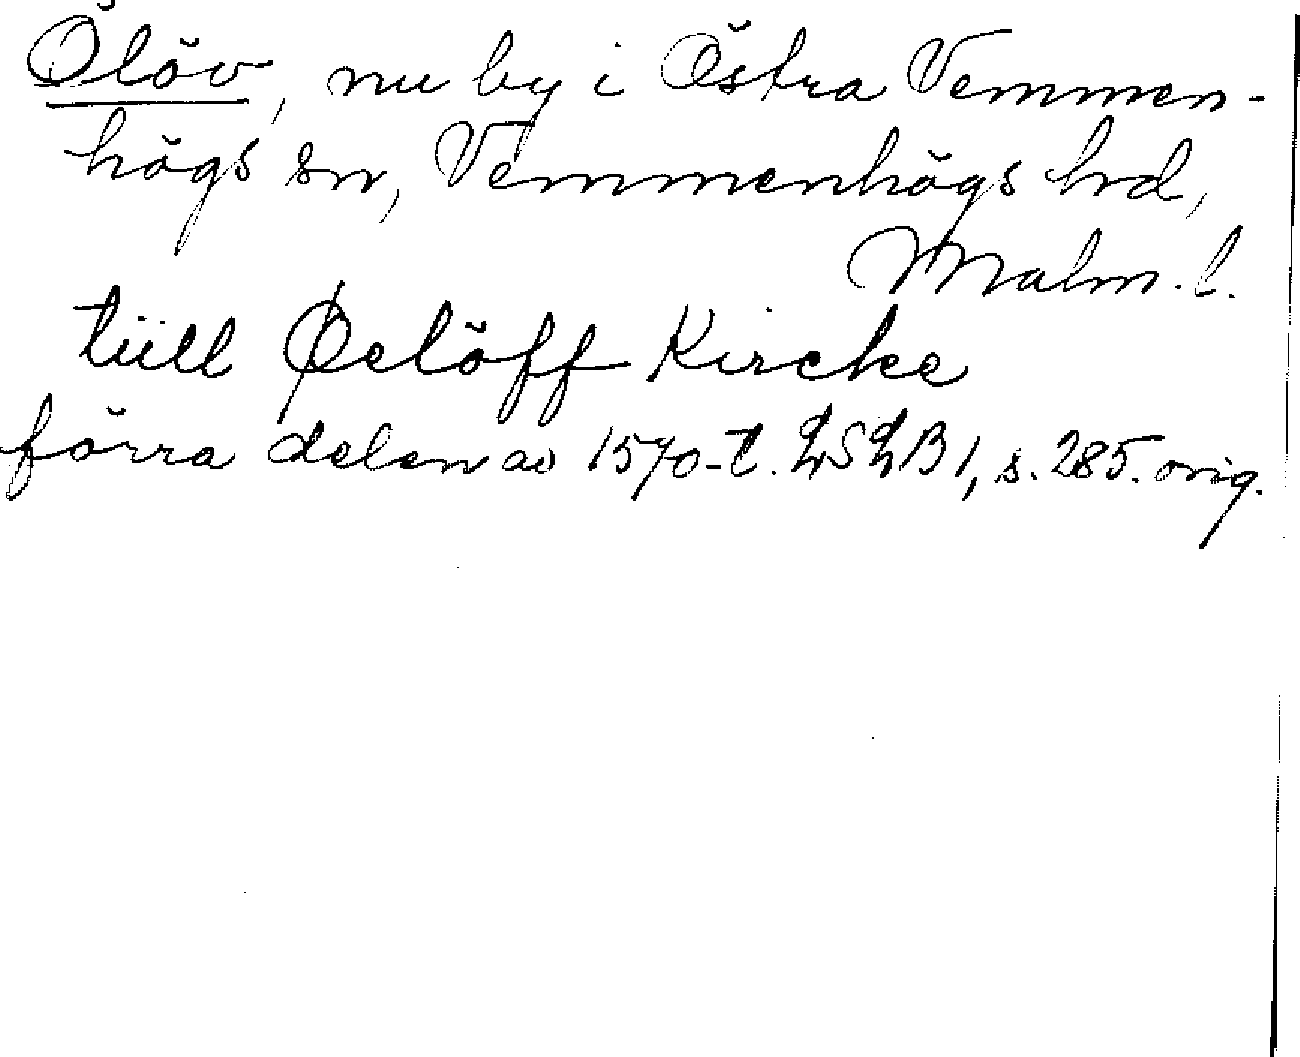 Ölöv, nu by i Östra Vemmen-
högs sn, Vemmenhögs hrd,
Malm. l.
tiill Øelöff Kircke
förra delen av 1570-t. LSLB 1, s. 285. orig.